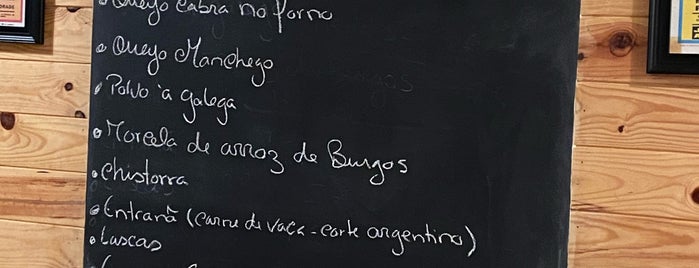 Queijo Cabra no forno
Queijo Manchego
Polvo à galega
Morcela de arroz de Burgos
Chistorra
Entranã (carne de vaca - corte argentino)
Lascas